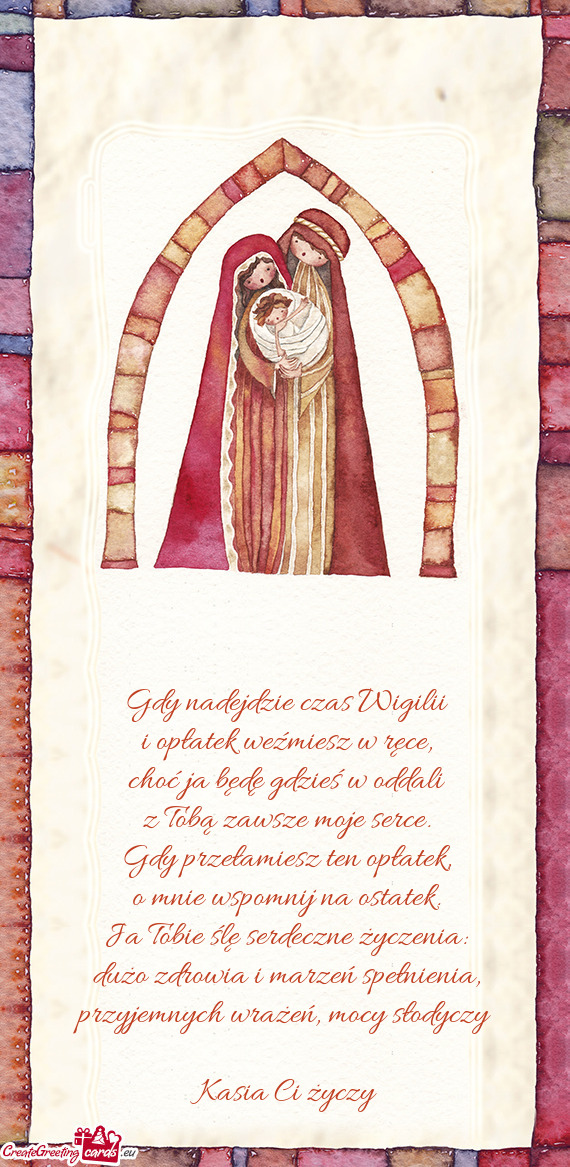 Gdy nadejdzie czas Wigilii
i opłatek weźmiesz w ręce,
choć ja będę gdzieś w oddali
z Tobą zawsze moje serce.
Gdy przełamiesz ten opłatek,
o mnie wspomnij na ostatek.
Ja Tobie ślę serdeczne życzenia:
dużo zdrowia i marzeń spełnienia,
przyjemnych wrażeń, mocy słodyczy
Kasia Ci życzy
CreateGreeting cards .eu